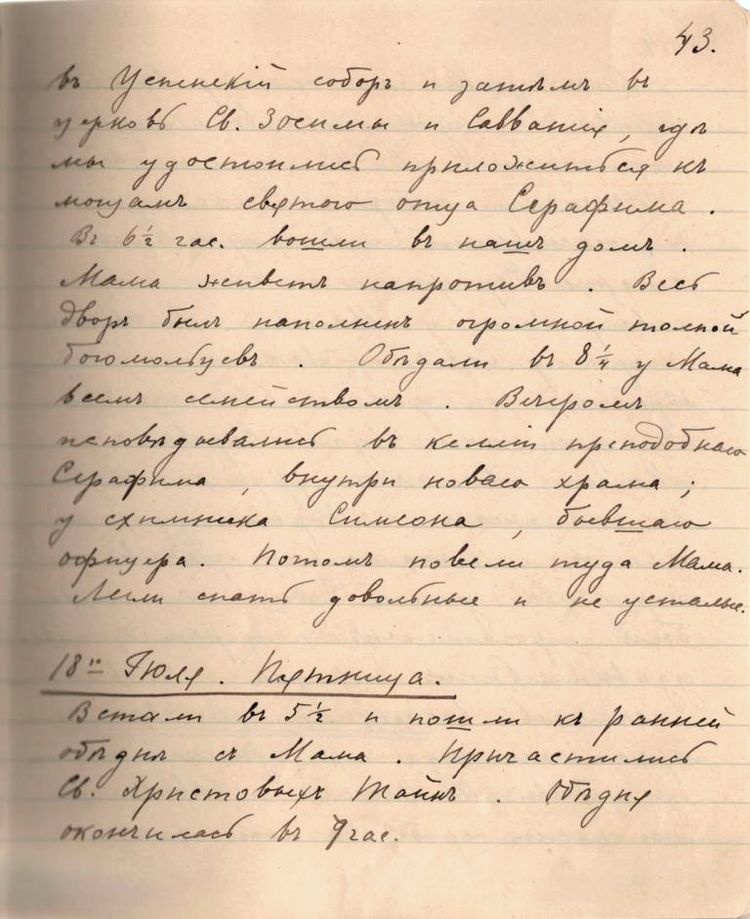 43.
въ Успенскій соборъ и затѣмъ въ
церковь Св. Зосимы и Савватія, гдѣ
мы удостоились приложиться къ
мощамъ святого отца Серафима.
Въ 6½ час. вошли въ нашъ домъ.
Мама живетъ напротивъ. Весь
дворъ былъ наполненъ огромной толпой
богомольцевъ. Обѣдали въ 8¼ у Мама
всемъ семействомъ. Вечеромъ
исповѣдывались въ келліи преподобнаго
Серафима, внутри новаго храма;
у схимника Симеона, бывшаго
офицера. Потомъ повели туда Мама.
Легли спать довольные и не усталые.
18го Іюля. Пятница.
Встали въ 5½ и пошли къ ранней
обѣднѣ съ Мама. Причастились
Св. Христовыхъ Тайнъ. Обѣдня
окончилась въ 7 час.